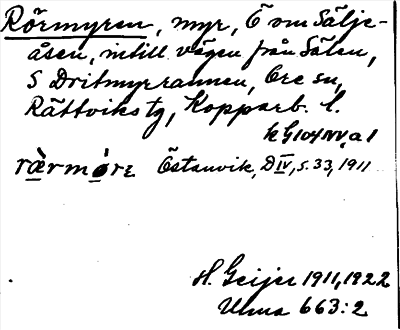 Rörmyren, myr, Ö om Sälje-
åsen, intill vägen från Sälen,
S Dritmyrrannen, Ore sn,
Rättviks tg, Kopparb. l.
k G 104 NV, a 1
rærmøre Östanvik, D IV, s. 33, 1911
H. Geijer 1911, 1922
Ulma 663:2